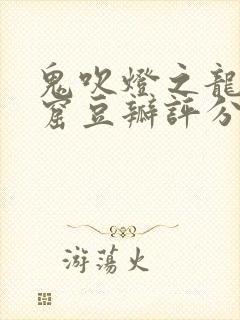 鬼吹燈之龍
窟豆瓣評分
游蕩火